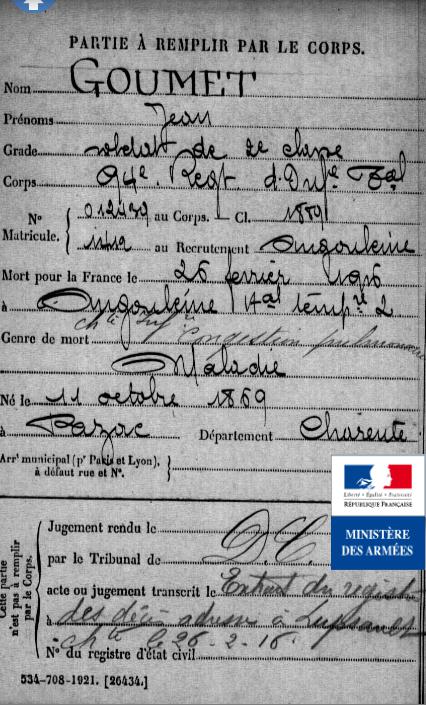 PARTIE À REMPLIR PAR LE CORPS.
Nom GOUMET
Prénoms Jean
Grade soldat de 2e classe
Corps 94e Regt d'Infie Tal
N° Matricule. 012439 au Corps. — Cl. 1889
1412 au Recrutement Angoulême
Mort pour la France le 26 février 1916
à Angoulême Hal tempre 2
Genre de mort congestion pulmonaire
Maladie
Né le 11 octobre 1869
à Département Charente
Arrt municipal (pr Paris et Lyon),
à défaut rue et N°.
Cette partie
n'est pas à remplir
par le Corps.
Jugement rendu le
par le Tribunal de D.C.
acte ou jugement transcrit le Extrait du
à des décès adressé à
chte le 26-2-16
N° du registre d'état civil
534-708-1921. [26434.]
Liberté • Égalité • Fraternité
RÉPUBLIQUE FRANÇAISE
MINISTÈRE
DES ARMÉES